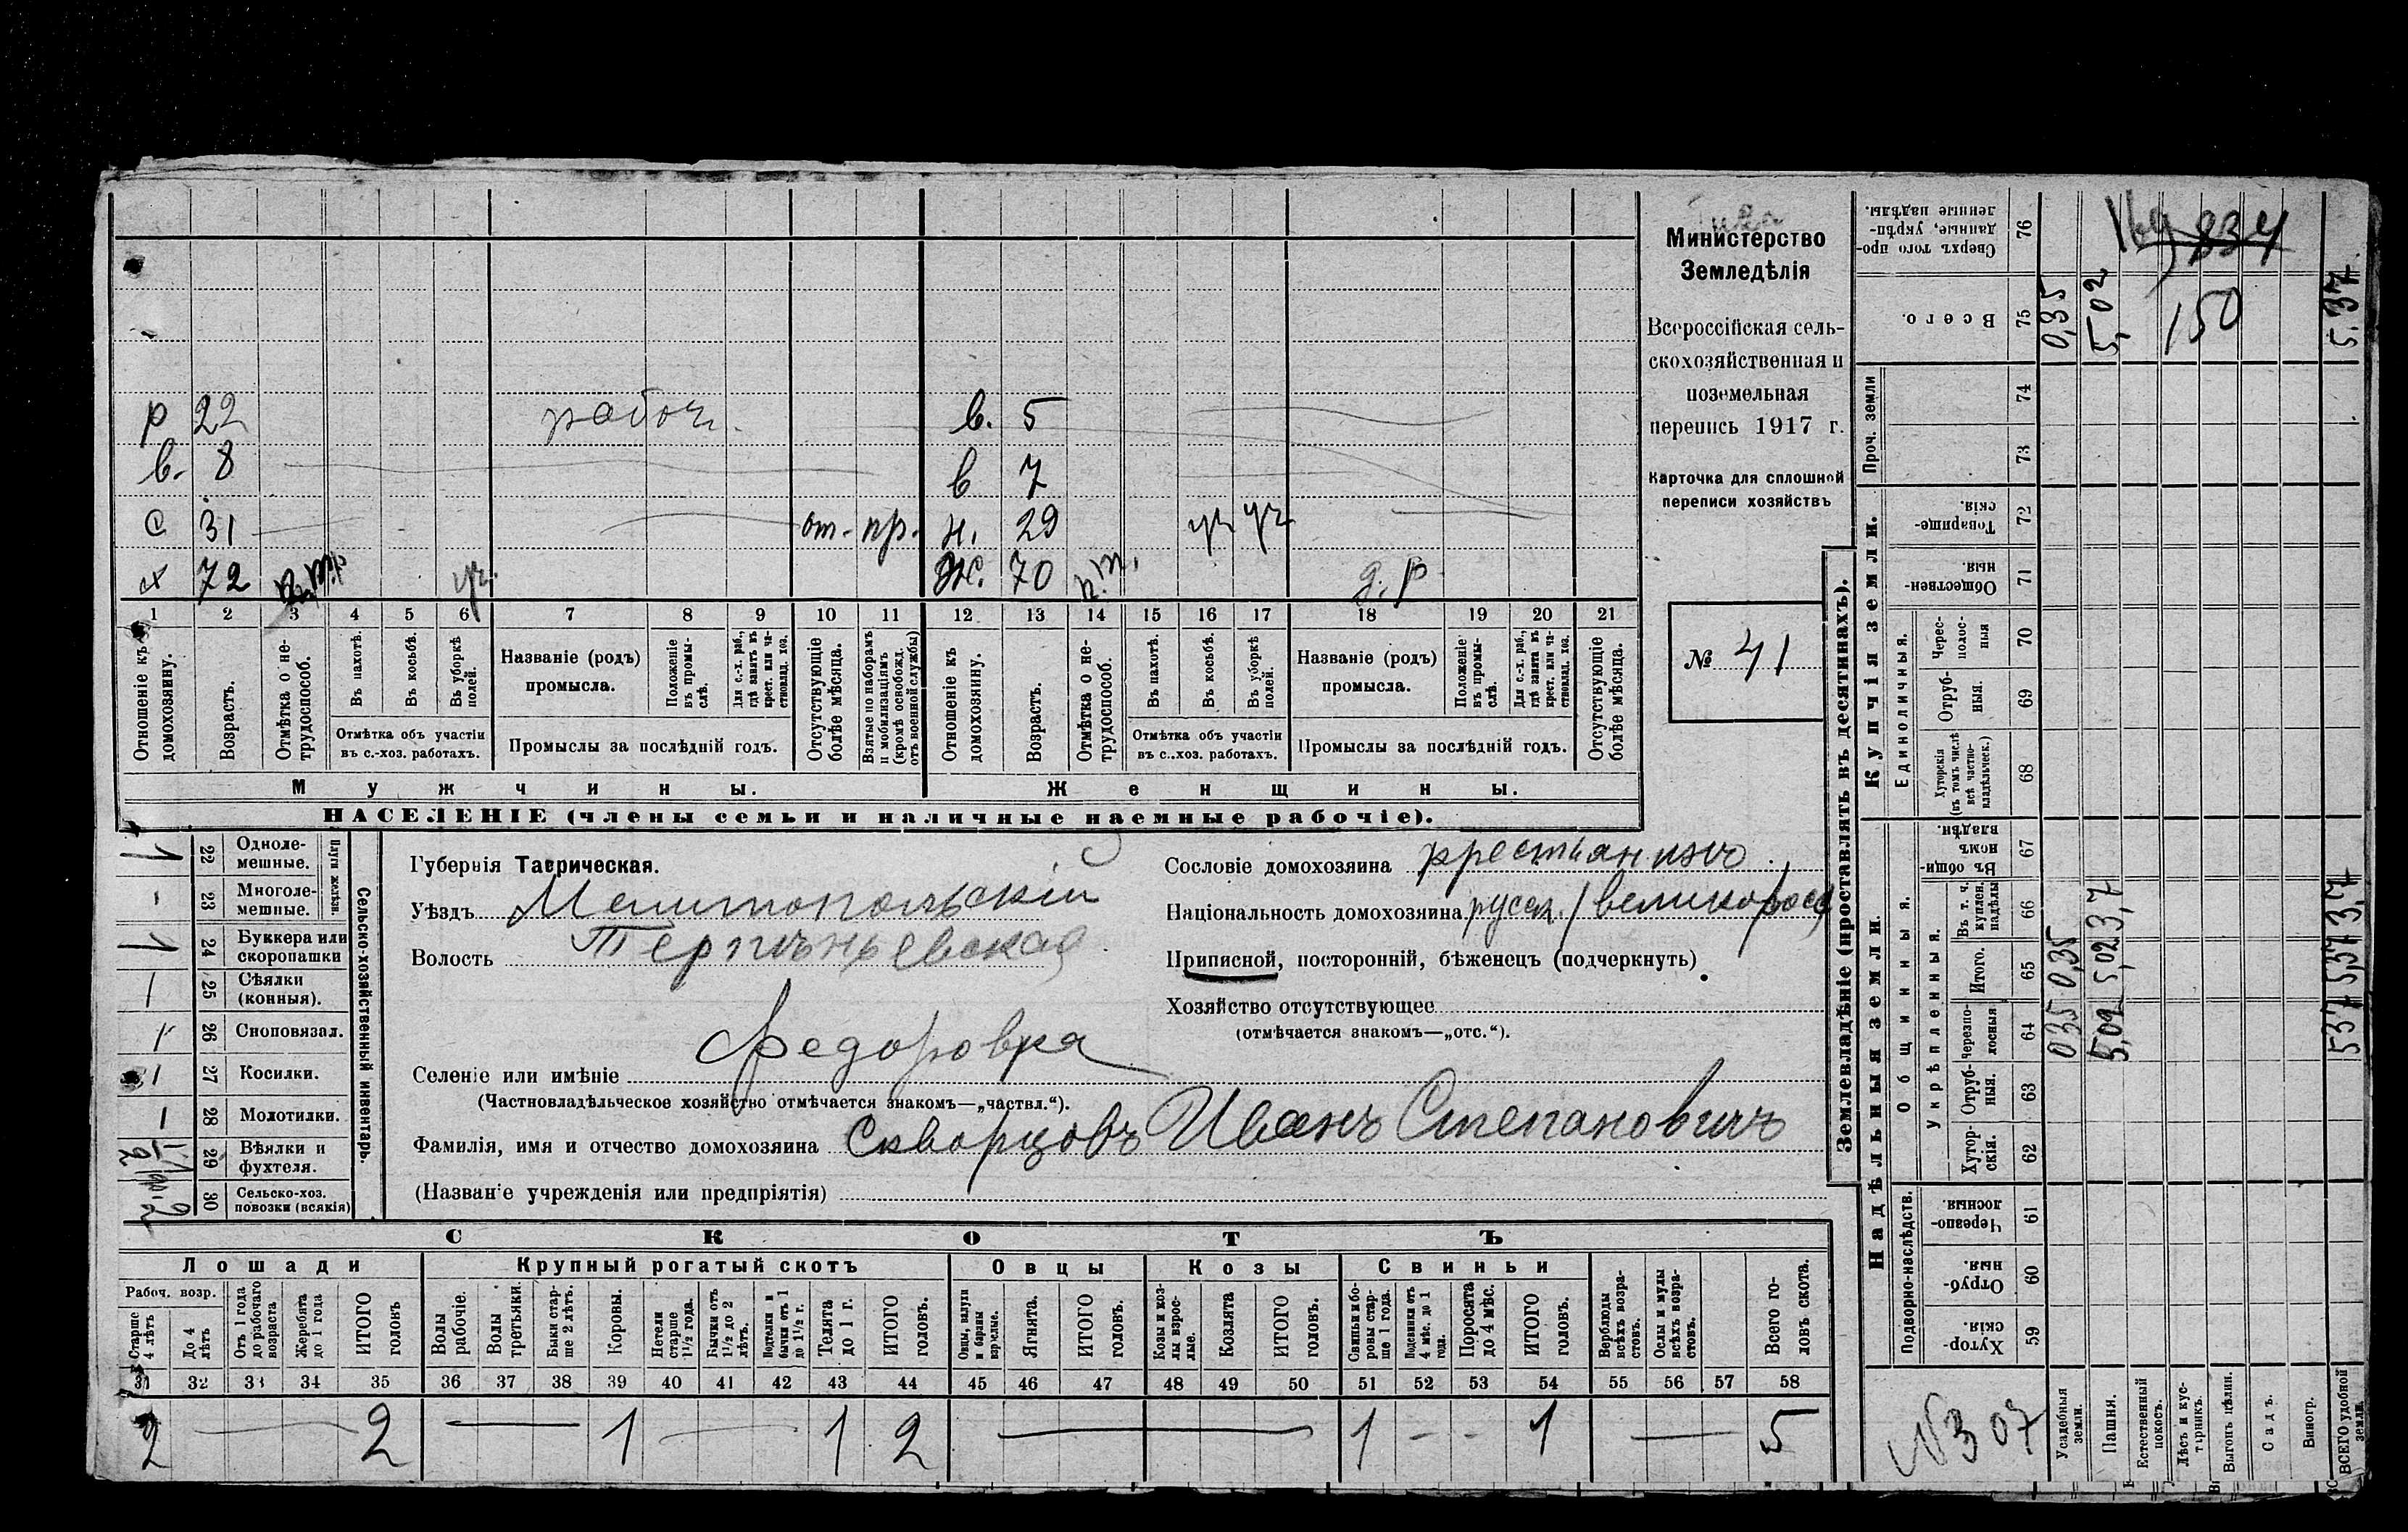 р 22 рабоч. в. 5
в. 8 в 7
с 31 от. пр. н. 29 уч уч
х 72 уч. Ж. 70 н.т. д.р
1 2 3 4 5 6 7 8 9 10 11 12 13 14 15 16 17 18 19 20 21
Отношеніе къ домохозяину.
Возрастъ.
Отмѣтка о нетрудоспособ.
Въ пахотѣ.
Въ косьбѣ.
Въ уборкѣ полей.
Отмѣтка объ участіи въ с.-хоз. работахъ.
Названіе (родъ) промысла.
Положеніе въ промыслѣ.
Для с.-х. раб., гдѣ занятъ въ крест. или частновлад. хоз.
Промыслы за послѣдній годъ.
Отсутствующіе болѣе мѣсяца.
Взятые по наборамъ и мобилизаціямъ (кромѣ освобожд. отъ военной службы)
Отношеніе къ домохозяину.
Возрастъ.
Отмѣтка о нетрудоспособ.
Въ пахотѣ.
Въ косьбѣ.
Въ уборкѣ полей.
Отмѣтка объ участіи въ с.-хоз. работахъ.
Названіе (родъ) промысла.
Положеніе въ промыслѣ.
Для с.-х. раб., гдѣ занята въ крест. или частновлад. хоз.
Промыслы за послѣдній годъ.
Отсутствующіе болѣе мѣсяца.
Мужчины. Женщины.
НАСЕЛЕНІЕ (члены семьи и наличные наемные рабочіе).
Министерство
Земледѣлія
Всероссійская сель-
скохозяйственная и
поземельная
перепись 1917 г.
Карточка для сплошной
переписи хозяйствъ
№ 41
Сельско-хозяйственный инвентарь.
Плуги желѣзн.
1 22 Однолемешные.
- 23 Многолемешные.
1 24 Буккера или скоропашки
25 Сѣялки (конныя).
26 Сноповязал.
27 Косилки.
28 Молотилки.
29 Вѣялки и фухтеля.
30 Сельско-хоз. повозки (всякія)
Губернія Таврическая.
Уѣздъ Мелитопольскій
Волость Терпѣньевская
Селеніе или имѣніе Федоровка
(Частновладѣльческое хозяйство отмѣчается знакомъ—„частвл.“).
Фамилія, имя и отчество домохозяина Скворцовъ Иванъ Степановичъ
(Названіе учрежденія или предпріятія)
Сословіе домохозяина
Національность домохозяина русск. / великоросс
Приписной, посторонній, бѣженецъ (подчеркнуть)
Хозяйство отсутствующее
(отмѣчается знакомъ—„отс.“).
СКОТЪ
Лошади Крупный рогатый скотъ Овцы Козы Свиньи
Рабоч. возр.
Старше 4 лѣтъ
До 4 лѣтъ
Отъ 1 года до рабочаго возраста
Жеребята до 1 года
ИТОГО головъ
Волы рабочіе.
Волы третьяки.
Быки старше 2 лѣтъ.
Коровы.
Нетели старше 1½ года.
Бычки отъ 1½ до 2 лѣтъ.
Подтелки и бычки отъ 1 до 1½ г.
Телята до 1 г.
ИТОГО головъ.
Овцы, валухи и бараны взрослые.
Ягнята.
ИТОГО головъ.
Козы и козлы взрослые.
Козлята
ИТОГО головъ.
Свиньи и боровы старше 1 года.
Подсвинки отъ 4 мѣс. до 1 года.
Поросята до 4 мѣс.
ИТОГО головъ.
Верблюды всѣхъ возрастовъ.
Ослы и мулы всѣхъ возрастовъ.
Всего головъ скота.
31 32 33 34 35 36 37 38 39 40 41 42 43 44 45 46 47 48 49 50 51 52 53 54 55 56 57 58
2 — 2 — 1 — 1 2 — 1 - - 1 — 5
Землевладѣніе (проставлять въ десятинахъ).
Купчія земли.
Надѣльныя земли.
Сверхъ того проданные, укрѣпленные надѣлы. 76
Всего. 75 0,35 5,02 150 5.37
834
Проч. земли 74 73
Товарищескія 72
Общественныя. 71
Единоличныя.
Чересполосныя 70
Отрубныя. 69
Хуторскія (въ томъ числѣ всѣ частновладѣльческ.) 68
Общинныя.
Въ общинномъ владѣн. 67
Укрѣпленныя.
Въ т. ч. куплен. надѣлы 66
Итого. 65 0,35 5,02 5,37
Черезполосныя 64 035 5,02 537
Отрубныя. 63
Хуторскія. 62
Подворно-наслѣдств.
Черезполосныя 61
Отрубныя. 60
Хуторскія. 59
N 307
Усадебныя земли.
Пашня.
Естественный покосъ.
Лѣсъ и кустарникъ.
Выгонъ цѣлин.
Садъ.
Виногр.
ВСЕГО удобной земли.